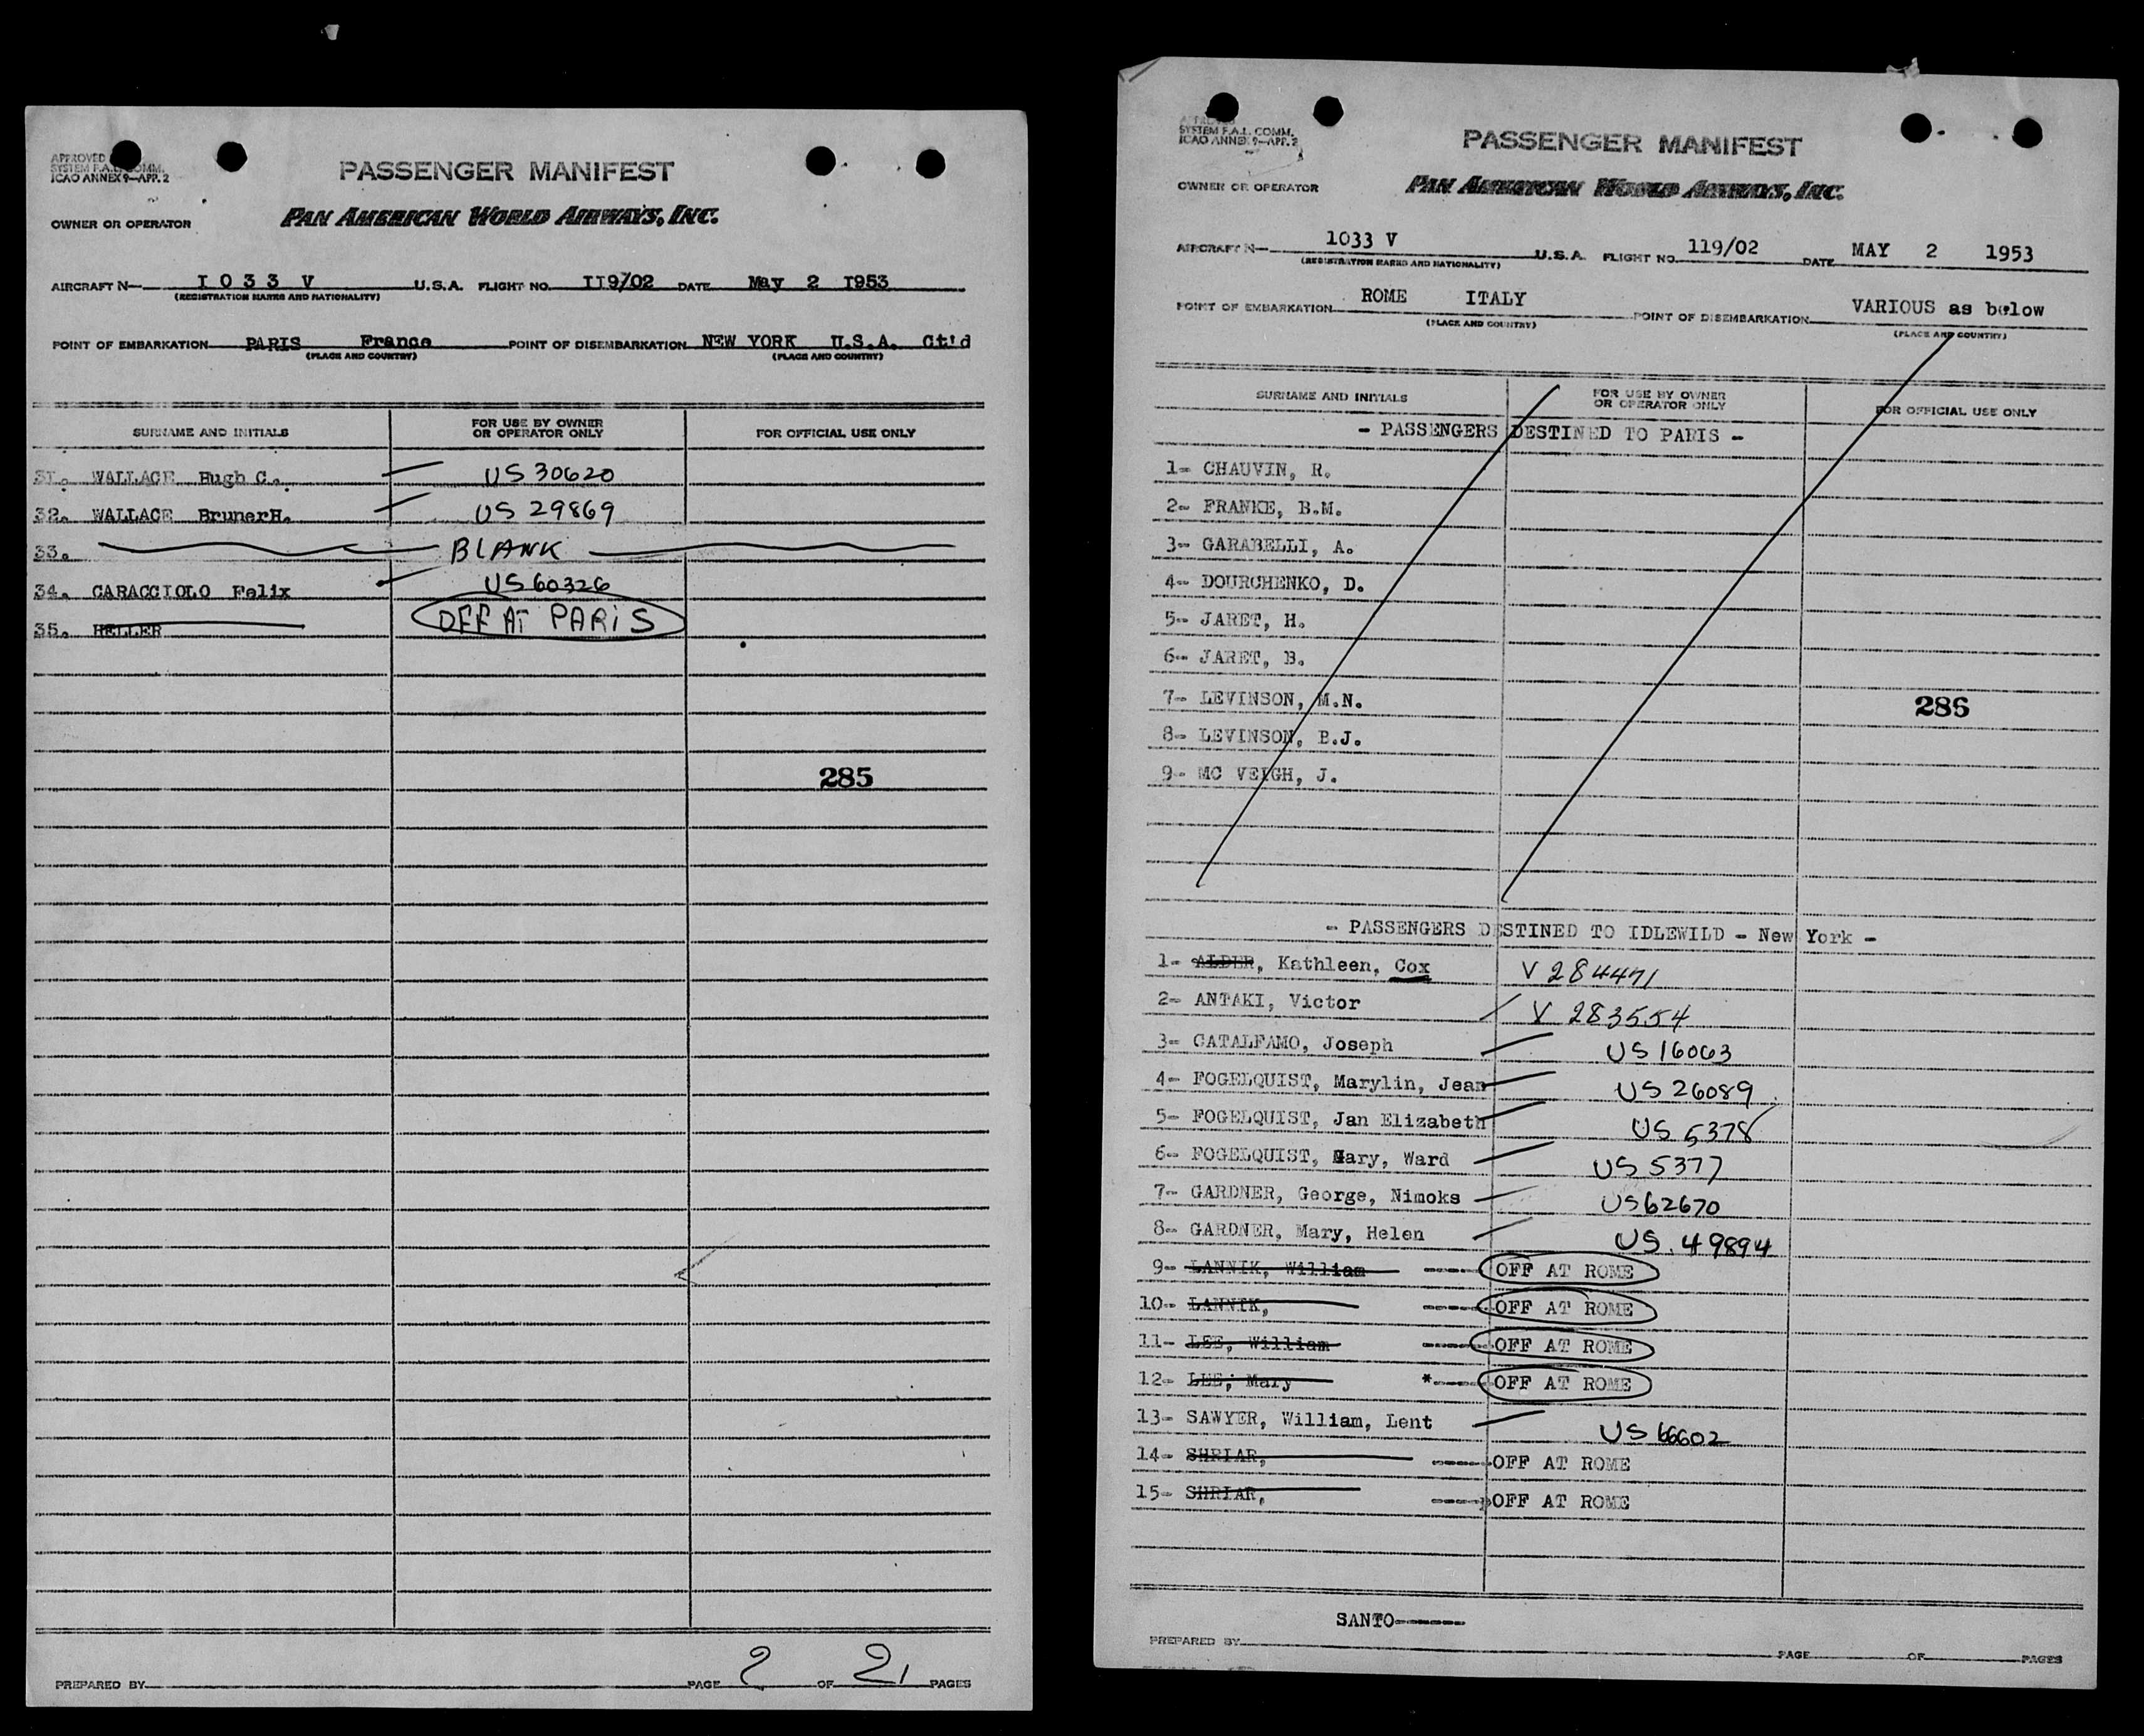 APPROVED
SYSTEM F.A.L. COMM.
ICAO ANNEX 9—APP. 2
PASSENGER MANIFEST
OWNER OR OPERATOR
PAN AMERICAN WORLD AIRWAYS, INC.
AIRCRAFT N— I 0 3 3 V U.S.A. FLIGHT NO. II9/02 DATE May 2 I953
(REGISTRATION MARKS AND NATIONALITY)
POINT OF EMBARKATION PARIS France POINT OF DISEMBARKATION NEW YORK U.S.A. Ct'd
(PLACE AND COUNTRY) (PLACE AND COUNTRY)
SURNAME AND INITIALS FOR USE BY OWNER OR OPERATOR ONLY FOR OFFICIAL USE ONLY
31. WALLACE Hugh C. US 30620
32. WALLACE BrunerH. US 29869
33. BLANK
34. CARACCIOLO Felix US 60326
35. HELLER OFF AT PARIS
285
PREPARED BY PAGE 2 OF 2 PAGES
APPROVED
SYSTEM F.A.L. COMM.
ICAO ANNEX 9—APP. 2
PASSENGER MANIFEST
OWNER OR OPERATOR
PAN AMERICAN WORLD AIRWAYS, INC.
AIRCRAFT N— 1033 V U.S.A. FLIGHT NO. 119/02 DATE MAY 2 1953
(REGISTRATION MARKS AND NATIONALITY)
POINT OF EMBARKATION ROME ITALY POINT OF DISEMBARKATION VARIOUS as below
(PLACE AND COUNTRY) (PLACE AND COUNTRY)
SURNAME AND INITIALS FOR USE BY OWNER OR OPERATOR ONLY FOR OFFICIAL USE ONLY
- PASSENGERS DESTINED TO PARIS -
1- CHAUVIN, R.
2- FRANKE, B.M.
3- GARABELLI, A.
4- DOURCHENKO, D.
5- JARET, H.
6- JARET, B.
7- LEVINSON, M.N.
286
8- LEVINSON, B.J.
9- MC VEIGH, J.
- PASSENGERS DESTINED TO IDLEWILD - New York -
1- ALDER, Kathleen, Cox V 284471
2- ANTAKI, Victor V 283554
3- CATALFAMO, Joseph US 16063
4- FOGELQUIST, Marylin, Jean US 26089
5- FOGELQUIST, Jan Elizabeth US 5378
6- FOGELQUIST, Mary, Ward US 5377
7- GARDNER, George, Nimoks US 62670
8- GARDNER, Mary, Helen US. 49894
9- LANNIK, William ---- OFF AT ROME
10- LANNIK, ---- OFF AT ROME
11- LEE, William ---- OFF AT ROME
12- LEE, Mary *---- OFF AT ROME
13- SAWYER, William, Lent US 66602
14- SHRIAR, ---- OFF AT ROME
15- SHRIAR, ---- OFF AT ROME
SANTO------
PREPARED BY PAGE OF PAGES